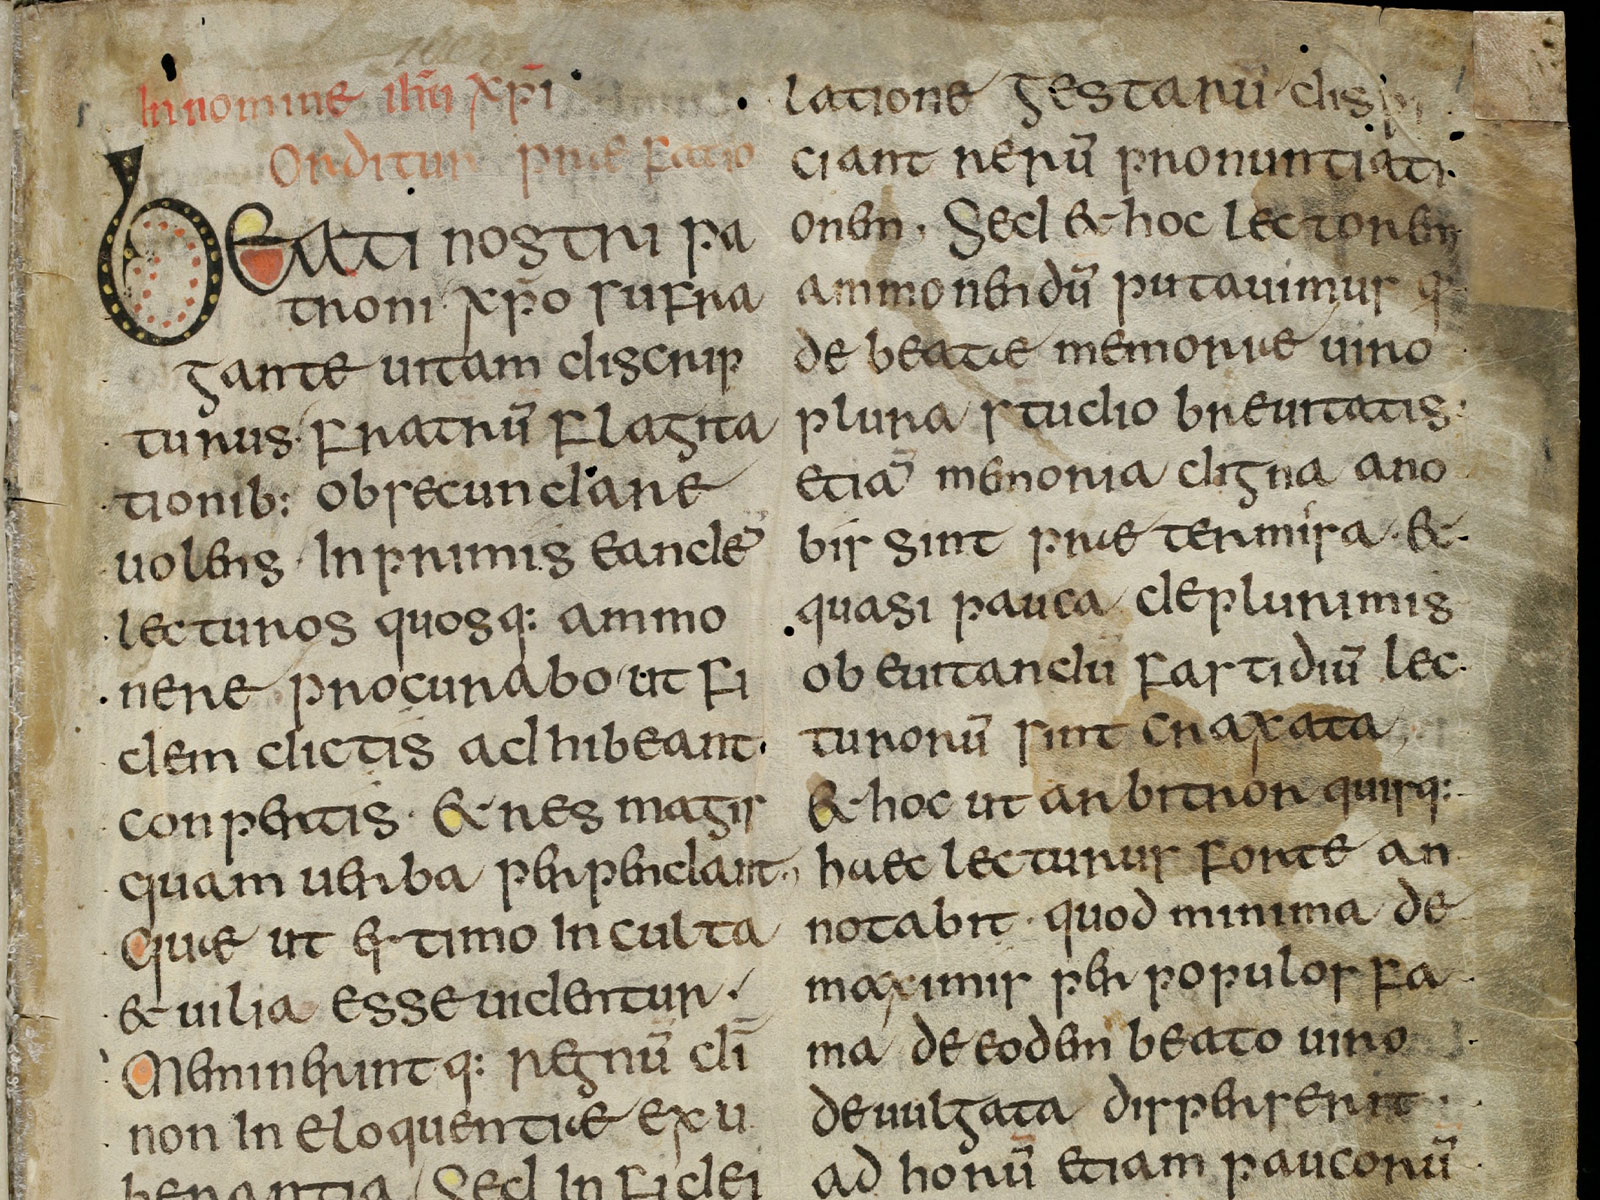 In nomine ihū xp̄i
Orditur praefatio
Beati nostri pa
troni xp̄o suffra
gante uitam discrip
turus fratrū flagita
tionib: obsecundare
uolens In primis eandē
lecturos quosq: ammo
nere procurabo ut fi
dem dictis adhibeant
conpertis · & res magis
quam uerba perpendant
Quae ut estimo Inculta
& uilia esse uidentur ·
Meminerunt q: regnū dī
non In eloquentiae exu
berantia Sed In fidei
latione gestarū disp
ciant rerū pronuntiati
onem · Sed & hoc lectorem
ammonendū putauimus q
de beatae memoriae uiro
plura studio breuitatis
etiā memoria digna ano
bis sint praetermisa · &
quasi pauca deplurimis
ob euitandū fastidiū lec
turorū sint craxata
& hoc ut arbitror quisq:
haec lecturus forte an
notabit · quod minima de
maximis per populos fa
ma de eodem beato uiro
deuulgata disperserit
ad horū etiam paucorū